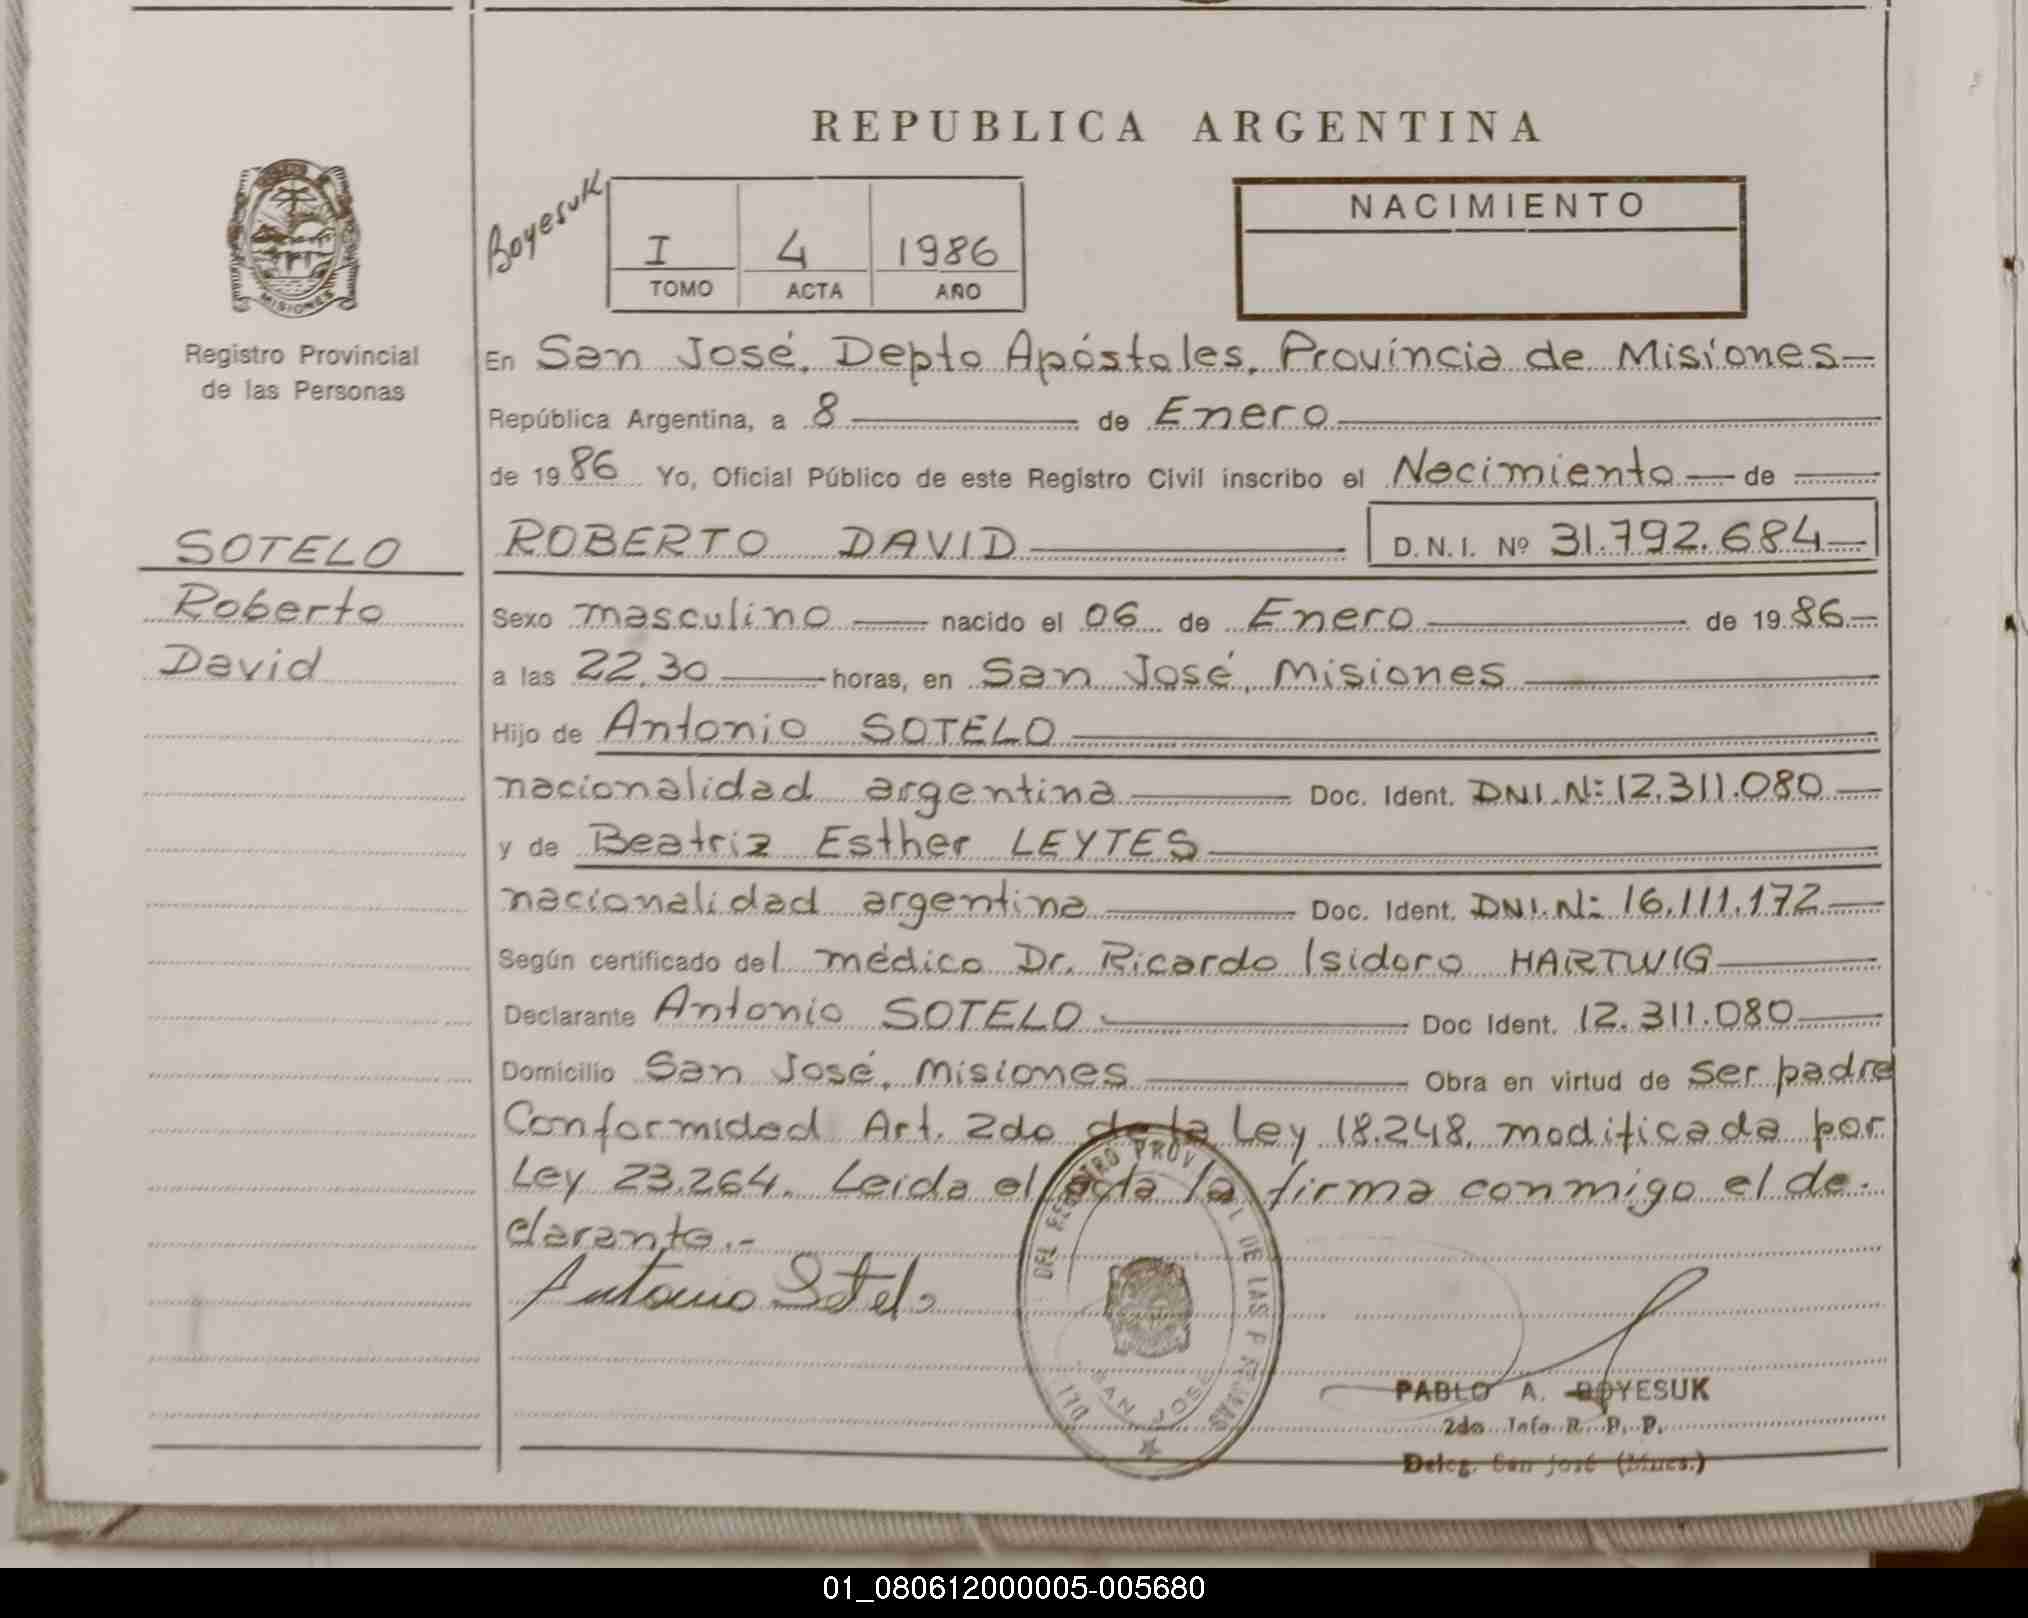 REPUBLICA ARGENTINA
MISIONES
Registro Provincial
de las Personas
Boyesuk
I 4 1986
TOMO ACTA AÑO
NACIMIENTO
En San José, Depto Apóstoles, Provincia de Misiones
República Argentina, a 8 de Enero
de 1986 Yo, Oficial Público de este Registro Civil inscribo el Nacimiento de
SOTELO
Roberto
David
ROBERTO DAVID D.N.I. Nº 31.792.684
Sexo masculino nacido el 06 de Enero de 1986
a las 22.30 horas, en San José, Misiones
Hijo de Antonio SOTELO
nacionalidad argentina Doc. Ident. DNI.Nº: 12.311.080
y de Beatriz Esther LEYTES
nacionalidad argentina Doc. Ident. DNI.Nº: 16.111.172
Según certificado del médico Dr. Ricardo Isidoro HARTWIG
Declarante Antonio SOTELO Doc Ident. 12.311.080
Domicilio San José, Misiones Obra en virtud de ser padre
Conformidad Art. 2do de la Ley 18.248, modificada por
Ley 23.264. Leida el acta la firma conmigo el de-
clarante.-
Antonio Sotelo
DEL REGISTRO PROV DE LAS
SAN JOSE
PABLO A. BOYESUK
2do Jefe R. P. P.
Deleg. San José (Mnes.)
01_080612000005-005680